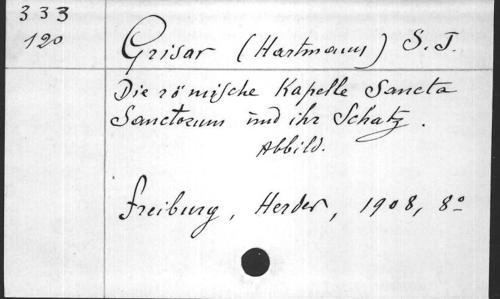 333
120
Grisar (Hartmann) S. J.
Die römische Kapelle Sancta
Sanctorum und ihr Schatz.
Abbild.
Freiburg, Herder, 1908, 8º